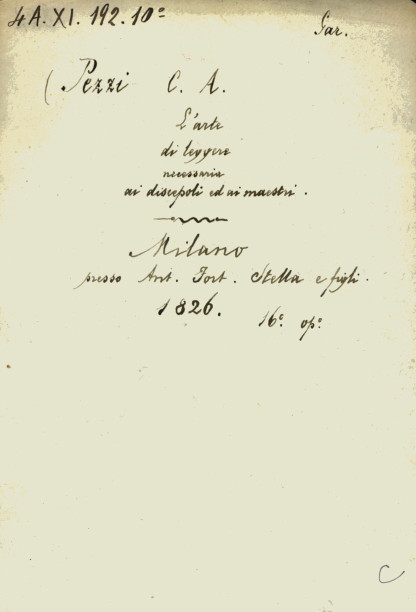 4 A. XI. 192. 10º
Gar.
( Pezzi C. A.
L'arte
di leggere
necessaria
ai discepoli ed ai maestri.
Milano
presso Ant. Fort. Stella e figli.
1826.
16º. opº.
C